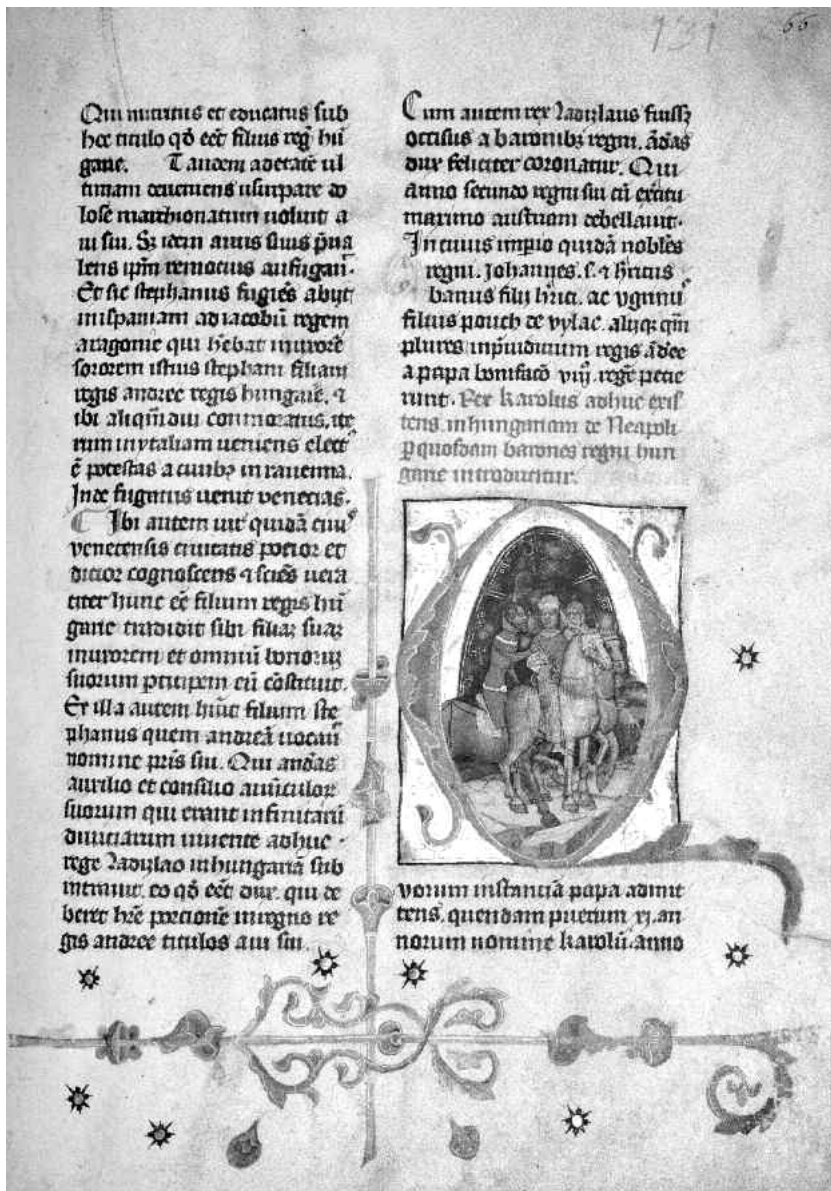 131
66
Qui nutritus et educatus sub
hoc titulo qđ eēt filius reḡ hū
garie. Tandem ad etatē ul
timam deueniens usurpare uo
lose marchionatum uoluit a
ui sui. Sꝫ idem auus suus p̄ua
lens ip̄m remocius aufugaū.
Et sic stephanus fugiēs abijt
inispaniam ad iacobū regem
aragonie qui hēbat inuxorē
sororem istius stephani filiam
regis andree regis hungaie. ⁊
ibi aliqm̄diu conmoratus. ite
rum inytaliam ueniens elect᷒
ē potestas a ciuibꝫ in rauenna.
Inde fugatus uenit venecias.
Ibi autem uir quidā ciui᷒
venecensis ciuitatis pocior et
dicior cognoscens ⁊ sciēs vera
citer hunc eē filium regis hū
garie tradidit sibi filiaꝫ suaꝫ
inuxorem et omniū bonoꝝ
suorum pticipem eū cōstituit.
Ex illa autem hūit filium ste
phanus quem andreā uocaū
nomine pr̄is sui. Qui andās
auxilio et consilio auūculoꝝ
suorum qui erant infinitarū
diuiciarum uiuente adhuc
rege ladizlao inhungariā sub
intrauit. eo qđ eēt dux. qui de
beret hr̄e porcionē inregno re
gis andree titulos aui sui.
Cum autem rex ladizlaus fuissꝫ
occisus a baronibꝫ regni. ādās
dux feliciter coronatur. Qui
anno secundo regni sui cū exercitu
maximo austriam debellauit.
In cuius imperio quidā nobiles
regni. Johannes. s. ⁊ hr̄icus
banus filij hr̄ici. ac vgrinu᷒
filius pouch de vylac. alijqꝫ qm̄
plures inp̄iudicium regis ādree
a papa bonifacio viij. regē pecie
runt. Rex karolus adhuc exis
tens. inhungariam de Neapoli
ꝑ quosdam barones regni hun
garie introducitur.
vorum instanciā papa admit
tens. quendam puerum xj. an
norum nomine karolū. anno